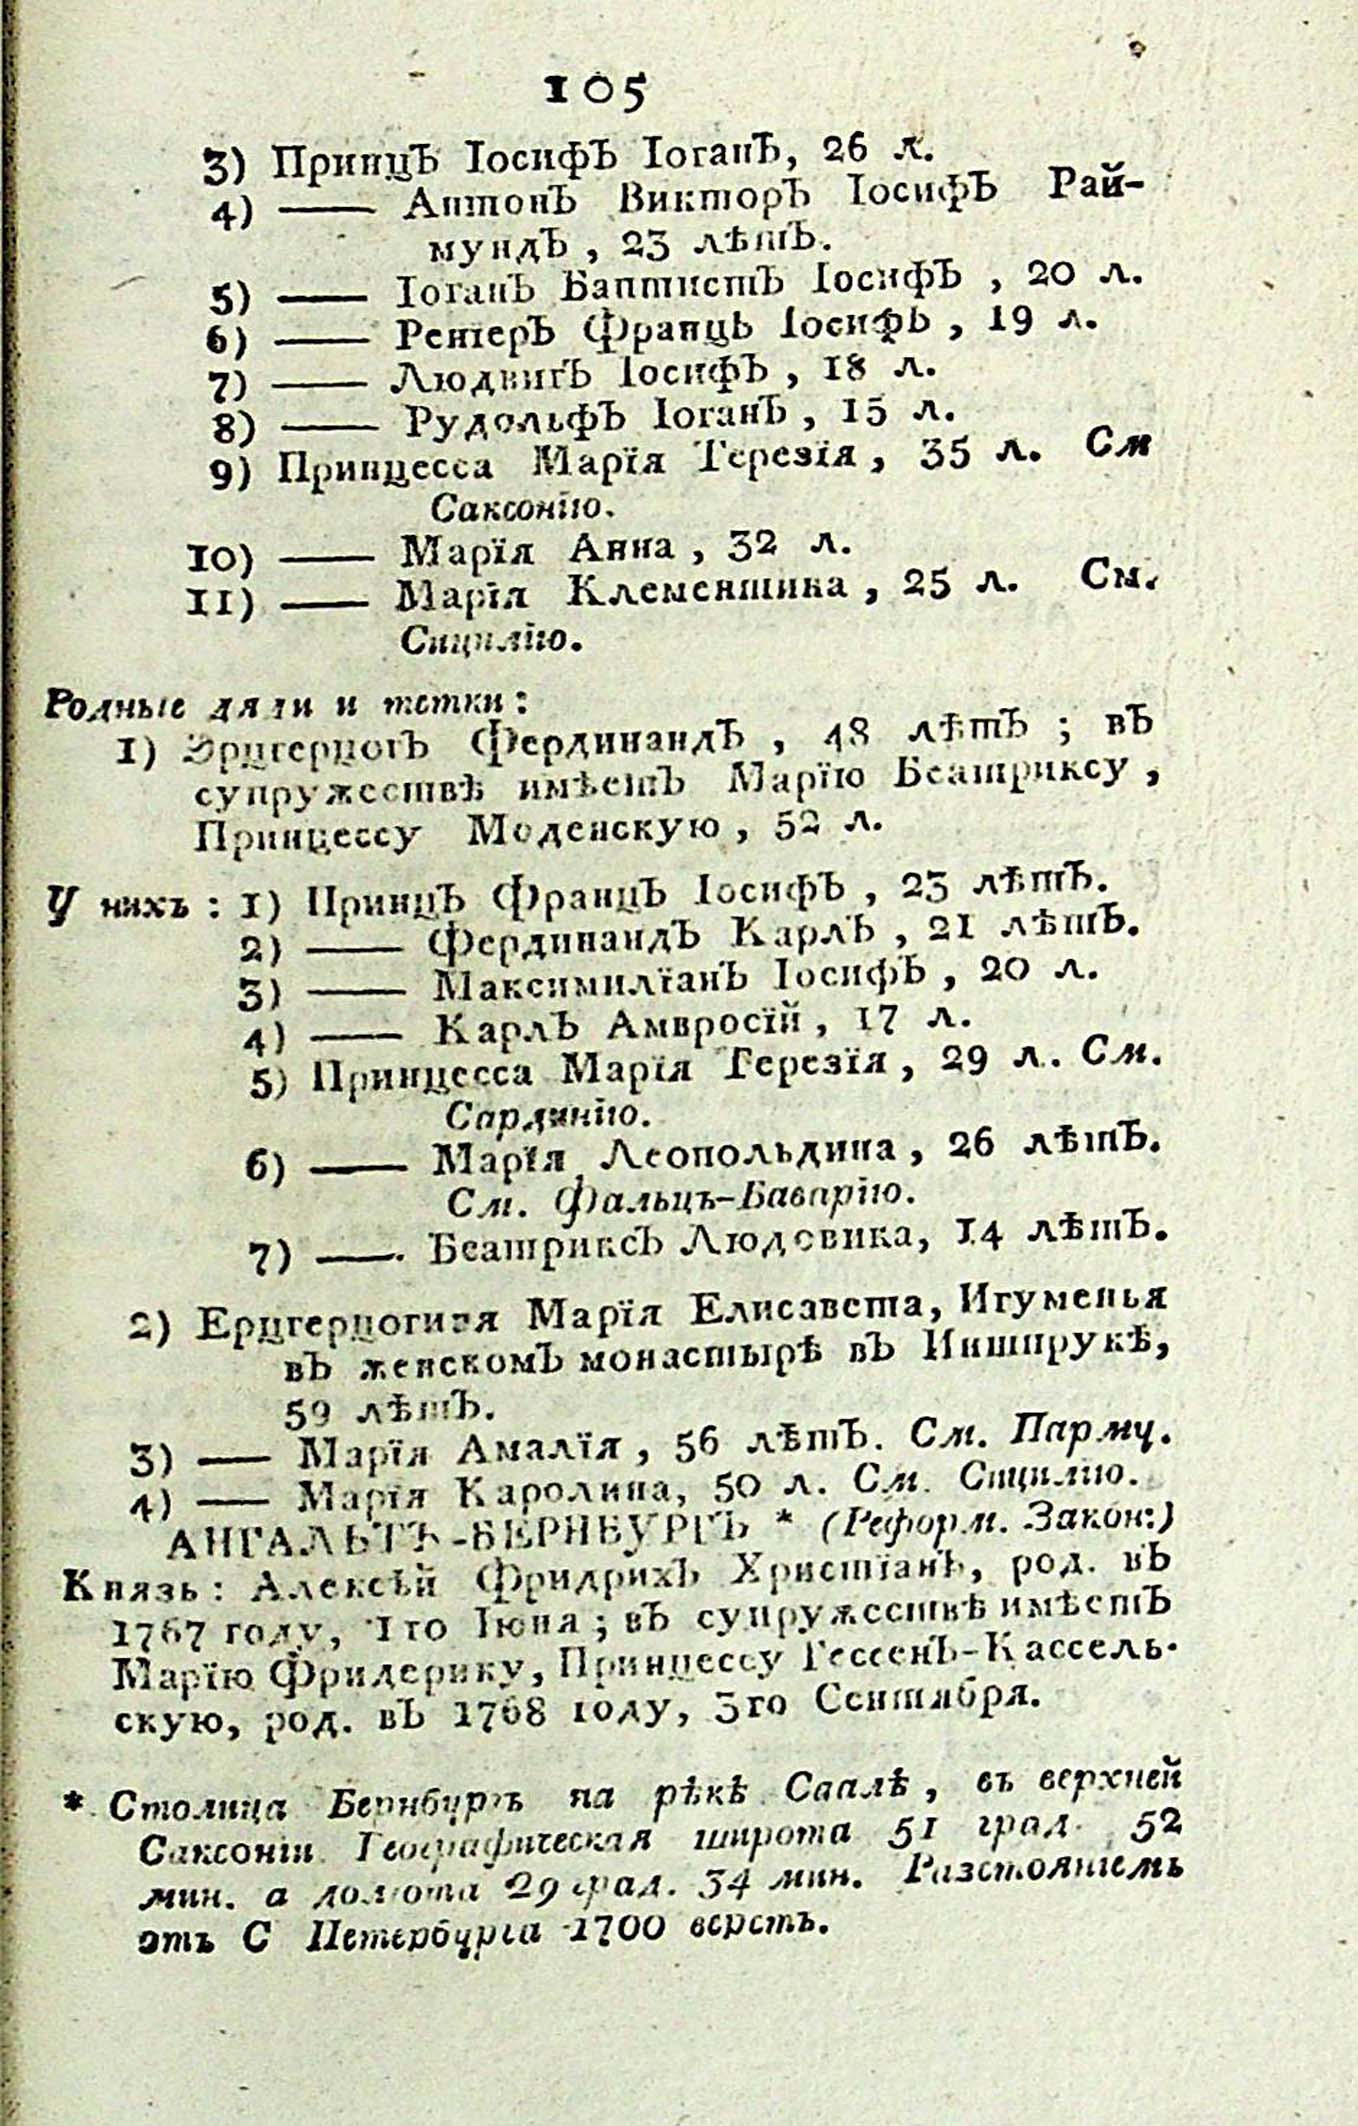 105
3) Принцъ Іосифъ Іоганъ, 26 л.
4) —— Антонъ Викторъ Іосифъ Рай-
мундъ, 23 лѣтъ.
5) —— Іоганъ Баптистъ Іосифъ, 20 л.
6) —— Реніеръ Францъ Іосифъ, 19 л.
7) —— Людвигъ Іосифъ, 18 л.
8) —— Рудольфъ Іоганъ, 15 л.
9) Принцесса Марїя Терезїя, 35 л. См
Саксонїю.
10) —— Марїя Анна, 32 л.
11) —— Марїя Клементина, 25 л. См.
Сицилїю.
Родные дяди и тетки:
1) Эрцгерцогъ Фердинандъ, 48 лѣтъ; въ
супружествѣ имѣетъ Марїю Беатриксу,
Принцессу Моденскую, 52 л.
У нихъ: 1) Принцъ Францъ Іосифъ, 23 лѣтъ.
2) —— Фердинандъ Карлъ, 21 лѣтъ.
3) —— Максимилїанъ Іосифъ, 20 л.
4) —— Карлъ Амвросїй, 17 л.
5) Принцесса Марїя Терезїя, 29 л. См.
Сардинїю.
6) —— Марїя Леопольдина, 26 лѣтъ.
См. Фальцъ-Баварїю.
7) —— Беатриксъ Людовика, 14 лѣтъ.
2) Ерцгерцогиня Марїя Елисавета, Игуменья
въ женскомъ монастырѣ въ Иншпрукѣ,
59 лѣтъ.
3) —— Марїя Амалїя, 56 лѣтъ. См. Парму.
4) —— Марїя Каролина, 50 л. См. Сицилїю.
АНГАЛЬТЪ-БЕРНБУРГЪ * (Реформ. Закон:)
Князь: Алексѣй Фридрихъ Христїанъ, род. въ
1767 году, 1го Іюня; въ супружествѣ имѣетъ
Марїю Фридерику, Принцессу Гессенъ-Кассель-
скую, род. въ 1768 году, 3го Сентября.
* Столица Бернбургъ на рѣкѣ Саалѣ, въ верхней
Саксонїи Географическая широта 51 град. 52
мин. а долгота 29 град. 34 мин. Разстоянїемъ
отъ С Петербурга 1700 верстъ.